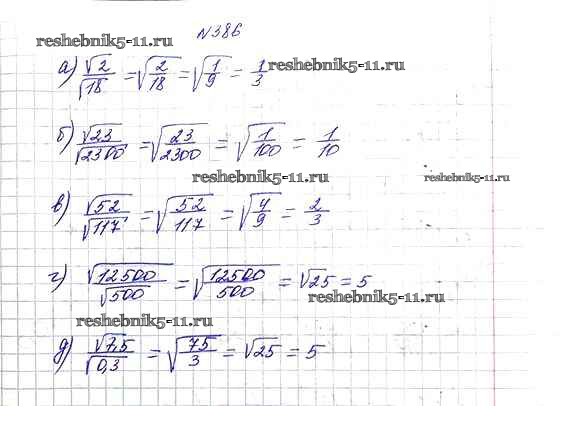 №386
reshebnik5-11.ru
а) √2/√18 = √(2/18) = √(1/9) = 1/3 reshebnik5-11.ru
б) √23/√2300 = √(23/2300) = √(1/100) = 1/10
reshebnik5-11.ru reshebnik5-11.ru
в) √52/√117 = √(52/117) = √(4/9) = 2/3
г) √12500/√500 = √(12500/500) = √25 = 5
reshebnik5-11.ru
reshebnik5-11.ru
д) √7,5/√0,3 = √(75/3) = √25 = 5